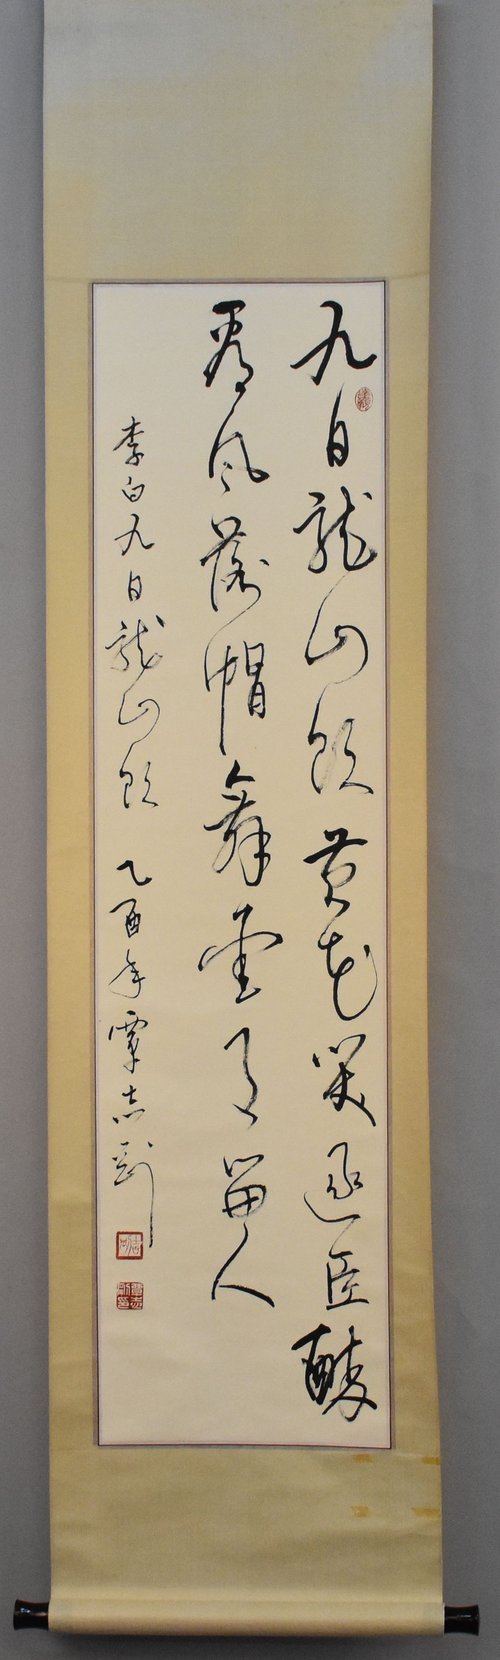 九日龍山飲黄花笑逐臣醉
看風落帽舞愛月留人
李白九日龍山飲 乙酉年覃志剛